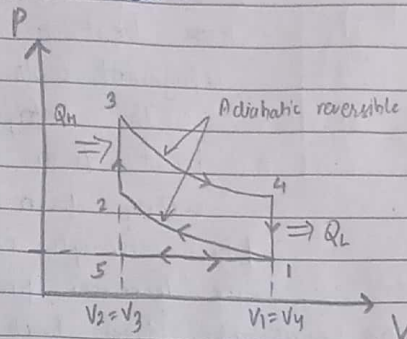 P
3
Adiabatic reversible
QH
⇒
4
2
⇒ QL
5
1
V2 = V3
V1 = V4
V